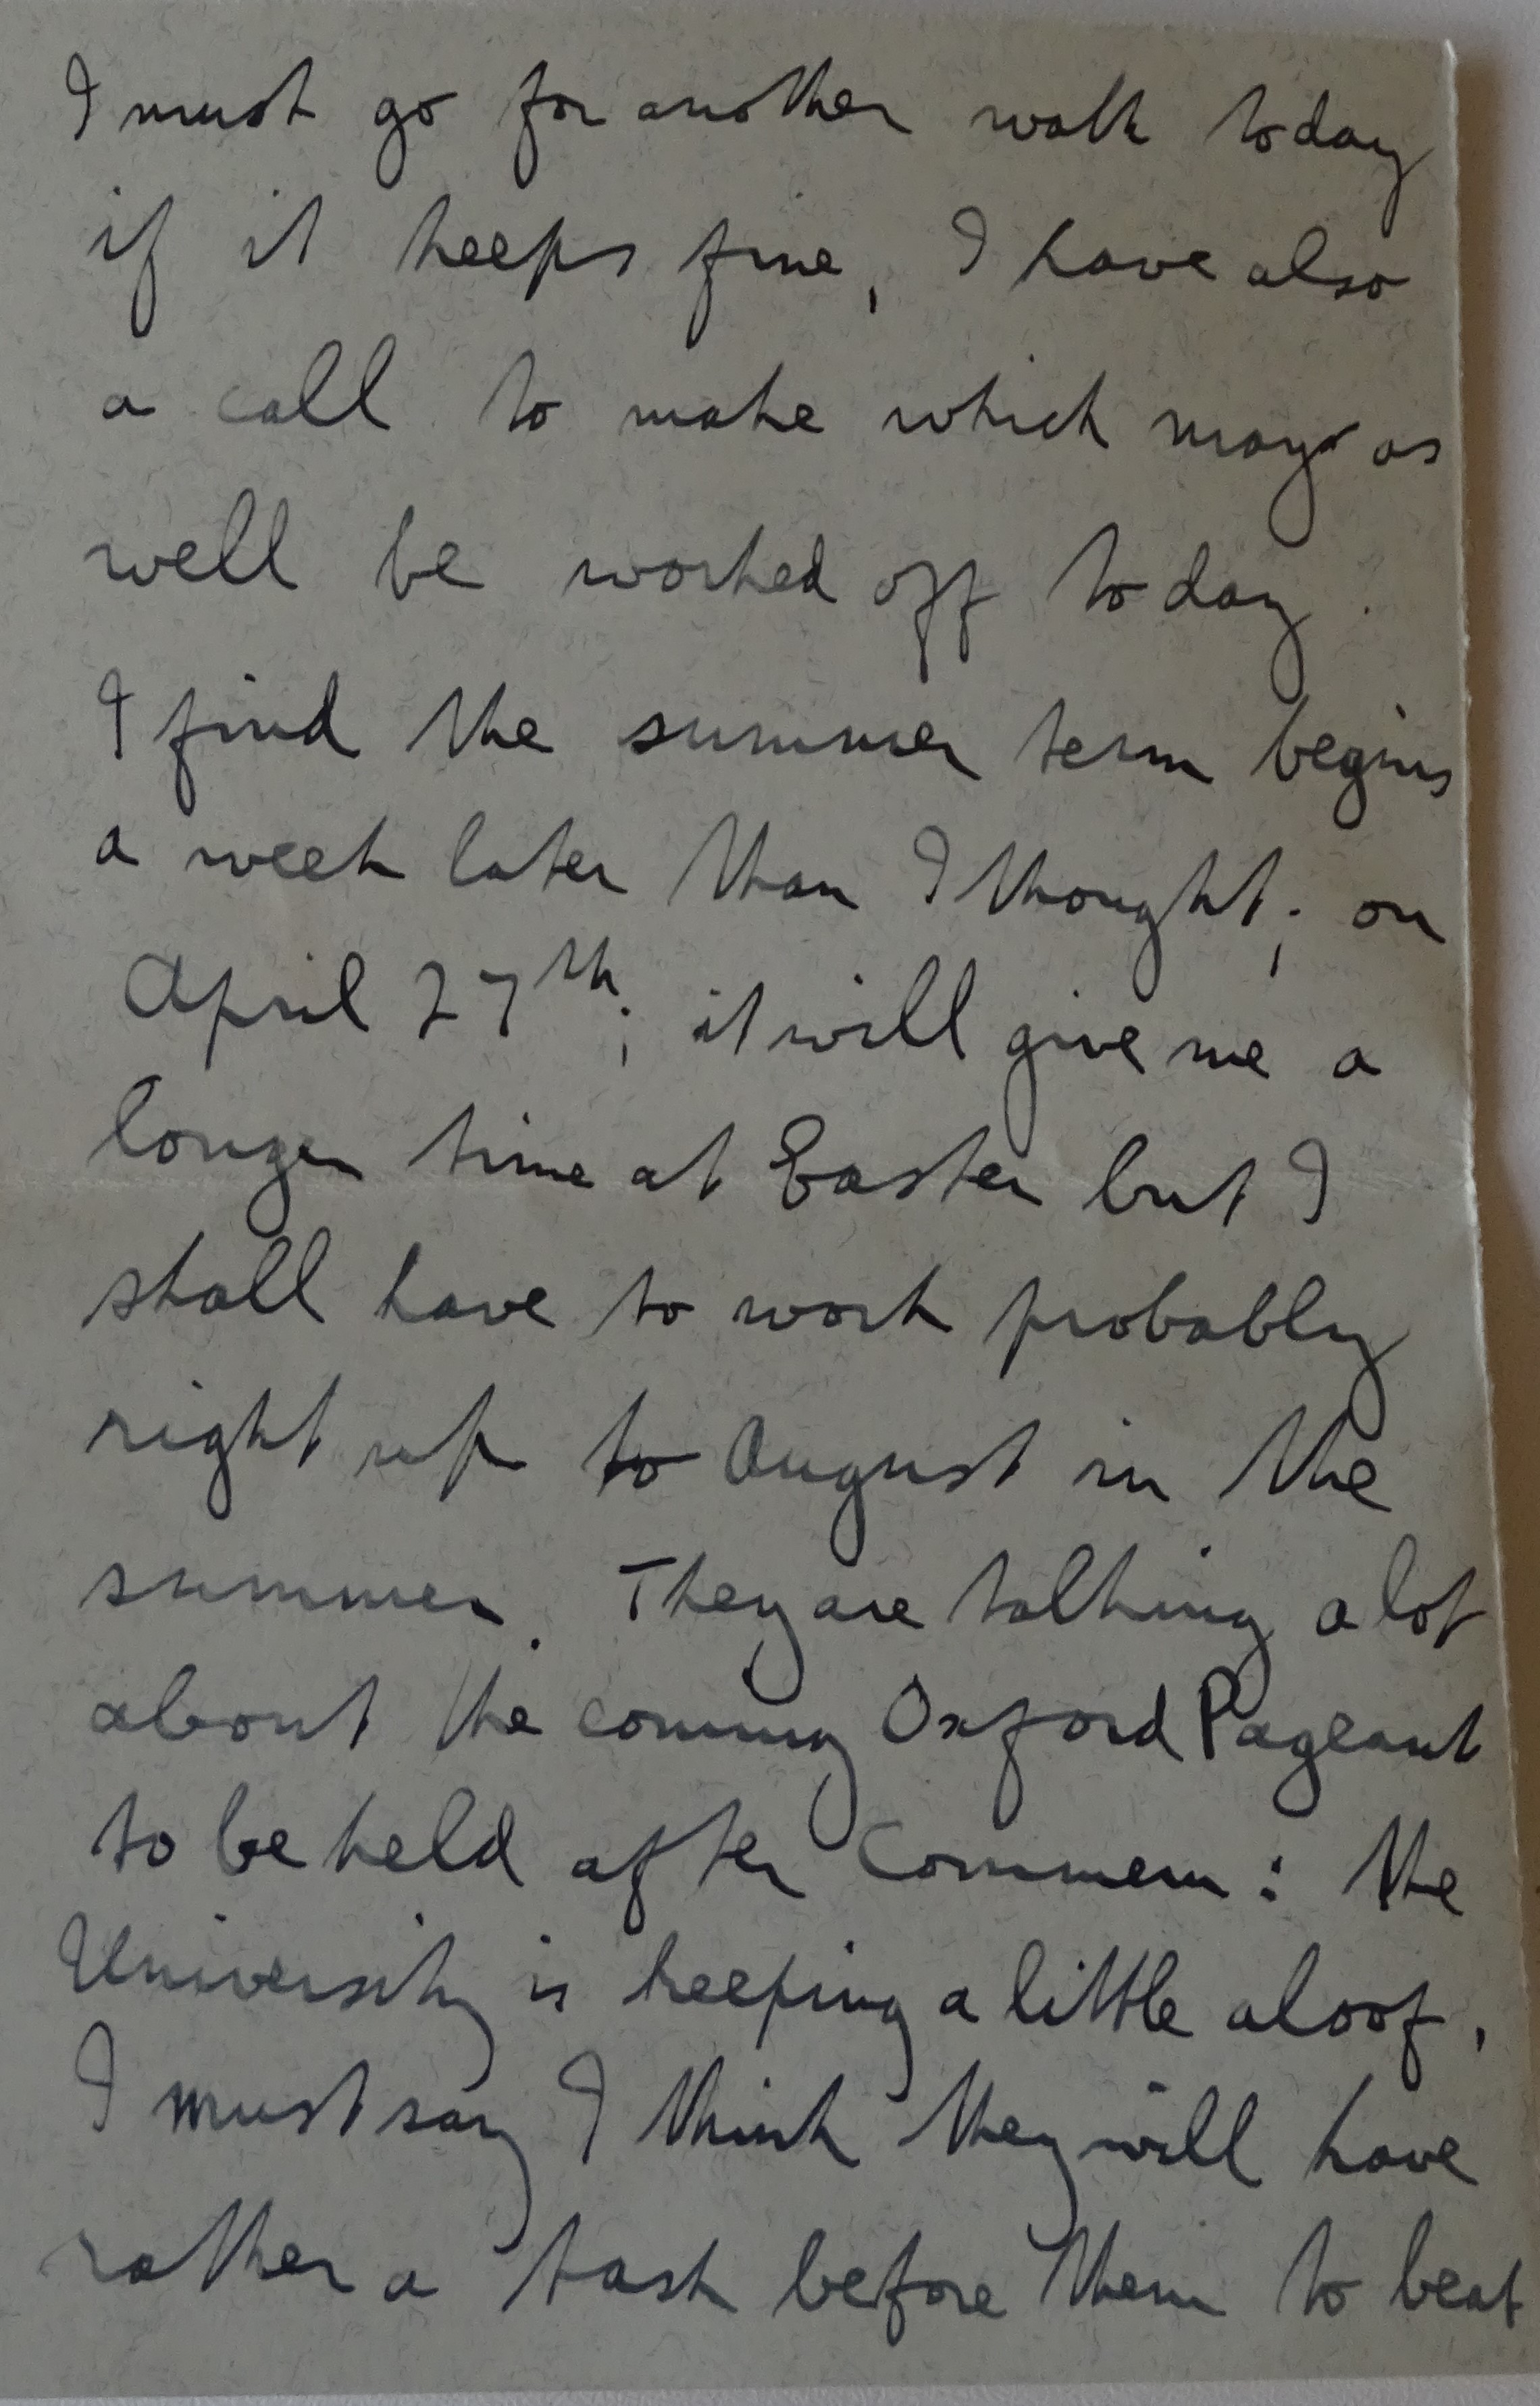 I must go for another walk today
if it keeps fine, I have also
a call to make which may as
well be worked off today.
I find the summer term begins
a week later than I thought; on
April 27th; it will give me a
longer time at Easter but I
shall have to work probably
right up to August in the
summer. They are talking a lot
about the coming Oxford Pageant
to be held after Commem: the
University is keeping a little aloof.
I must say I think they will have
rather a task before them to beat